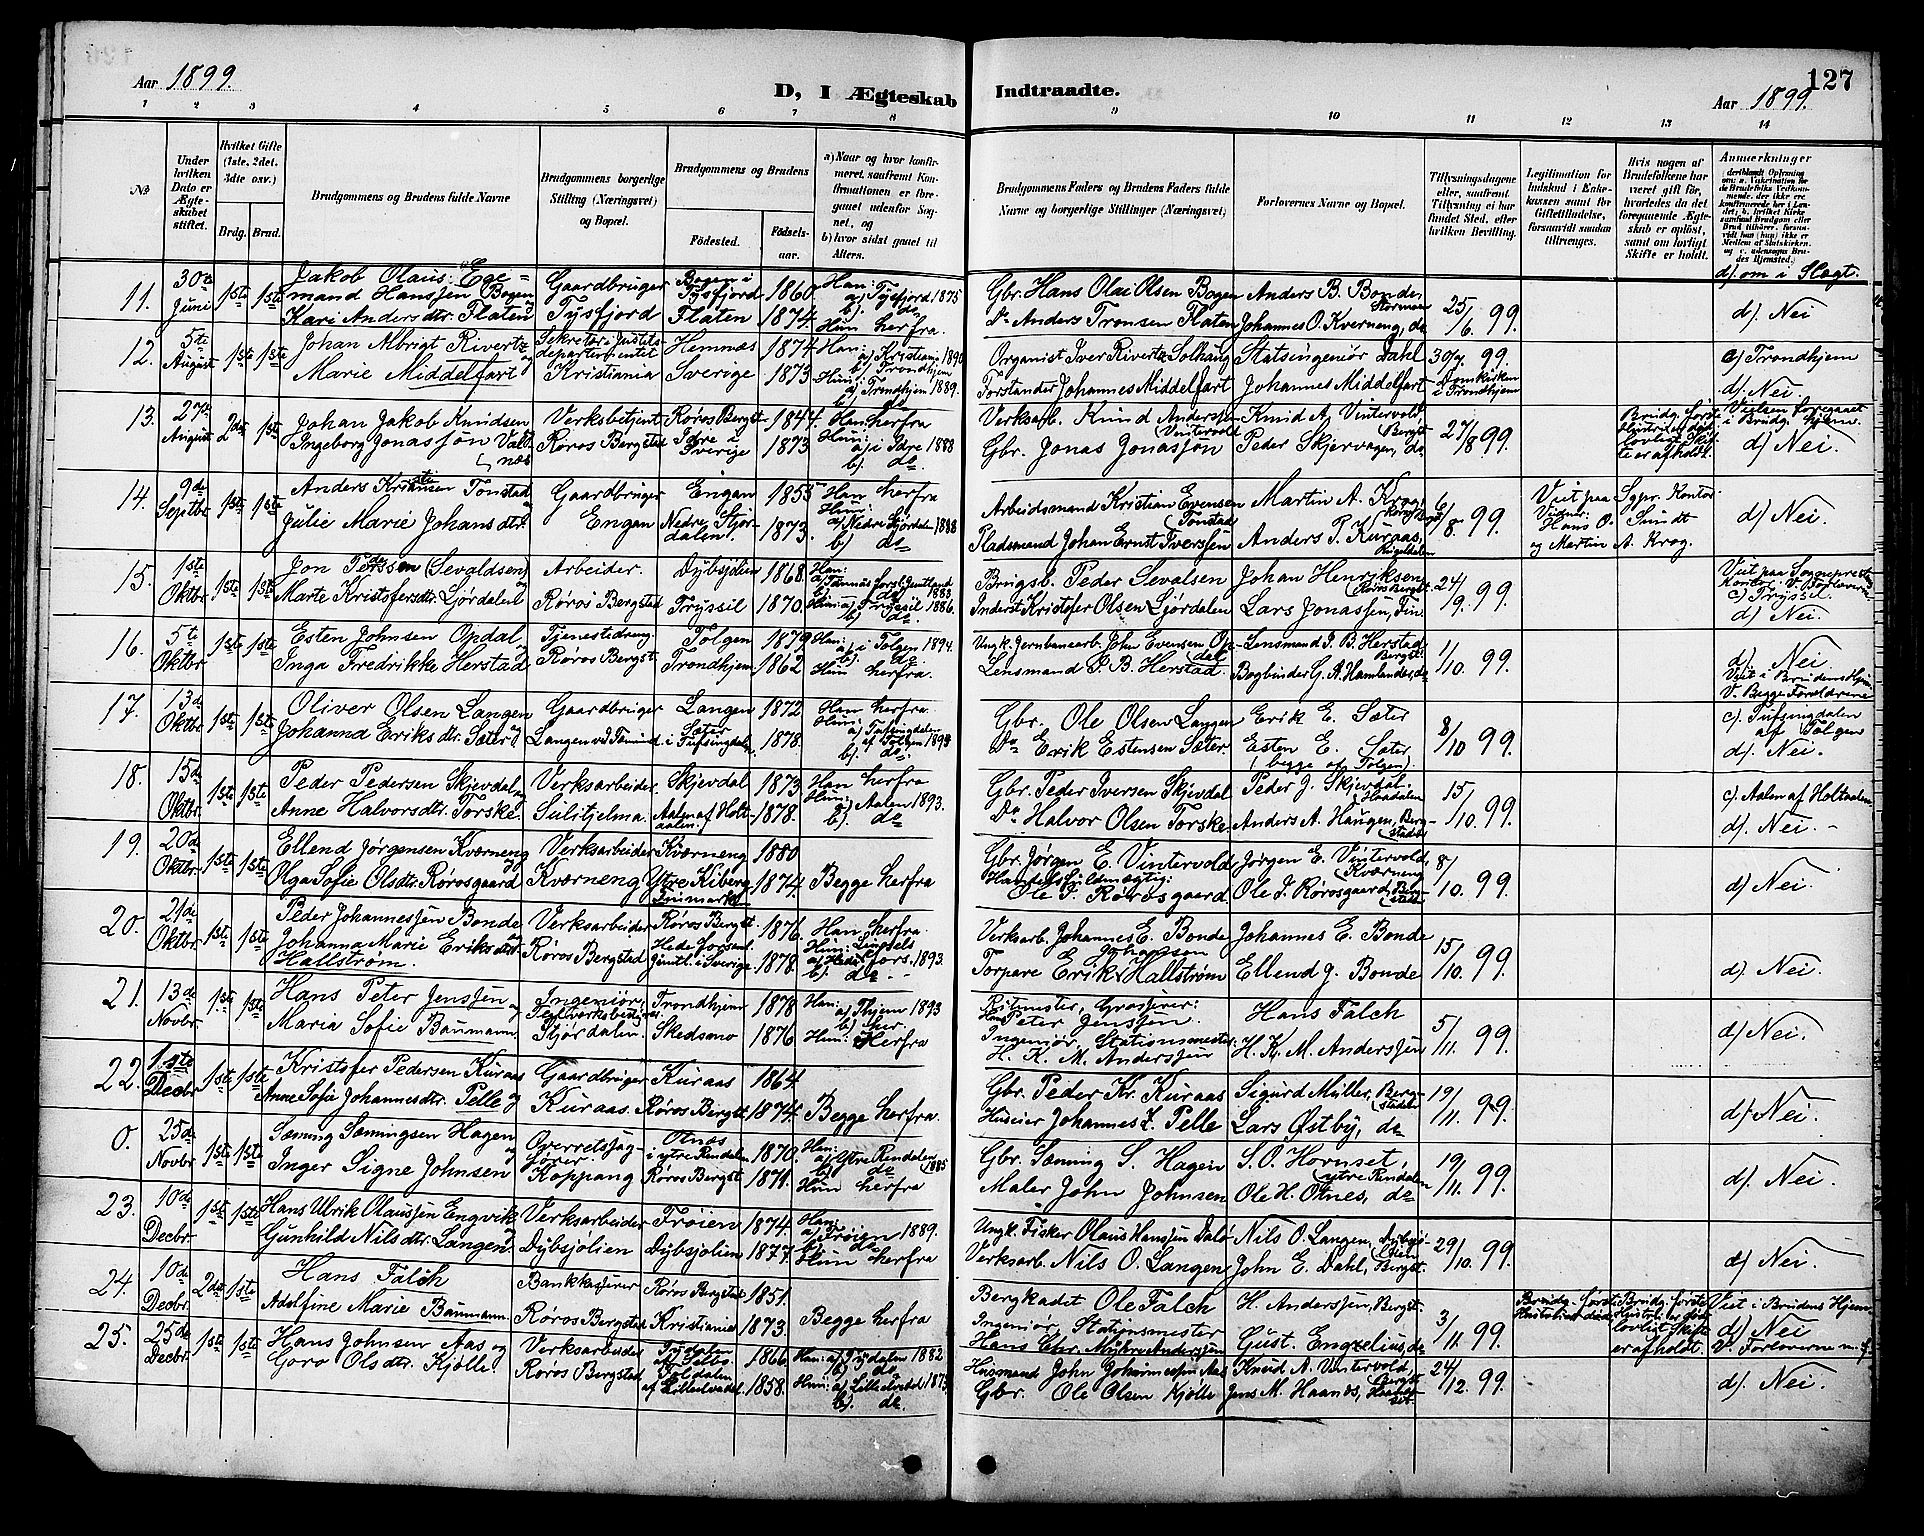 Aar 1899.
D, I Ægteskab Indtraadte.
127
Aar 1899.
1 2 3 4 5 6 7 8 9 10 11 12 13 14
No.
Under hvilken Dato er Ægteskabet stiftet.
Hvilket Gifte (1ste, 2det. 3dte osv.)
Brdg. Brud.
Brudgommens og Brudens fulde Navne
Brudgommens borgerlige Stilling (Næringsvei) og Bopæl.
Brudgommens og Brudens
Födested. Födselsaar.
a) Naar og hvor konfirmeret, saafremt Konfirmationen er foregaaet udenfor Sognet, og
b) hvor sidst gaaet til Alters.
Brudgommens Faders og Brudens Faders fulde Navne og borgerlige Stillinger (Næringsvei)
Forlovernes Navne og Bopæl.
Tillysningsdagene eller, saafremt Tillysning ei har fundet Sted, efter hvilken Bevilling.
Legitimation for Indskud i Enkekassen samt for Giftetilladelse, forsaavidt saadan tiltrænges.
Hvis nogen af Brudefolkene har været gift för, hvorledes da det foregaaende Ægteskab er oplöst, samt om lovligt Skifte er holdt.
Anmærkninger
d). om i Slægt.
11. 30te Juni 1ste 1ste
Jakob Olaus Egemand Hanssen Bogen og
Kari Andersdtr. Flaten
Gaardbruger Tysfjord
Bogen i Tysfjord 1860
Flaten 1874
Han: a) Tysfjord 1875 b). do
Hun herfra.
Gbr. Hans Olai Olsen Bogen
Do Anders Tronsen Flaten
Anders B. Bonde, Stormoen
Johannes O. Kverneng, do
25/6. 99.
d). Nei
12. 5te August 1ste 1ste
Johan Albrigt Rivertz og
Marie Middelfart
Sekretær i Justitsdepartementet Kristiania
Hemnæs 1874
Sverige 1873
Han: a) Kristiania 1890 b) Trondhjem
Hun: a) Trondhjem 1889. b) do
Organist Iver Rivertz Solhaug
Forstander Johannes Middelfart
Statsingeniör Dahl
Johannes Middelfart
30/7 99. Domkirken i Trondhjem
c) Trondhjem
d). Nei.
13. 27de August 2det 1ste
Johan Jakob Knudsen
Ingeborg Jonasson Valtnæs
Verksbetjent Röros Bergstad
Röros Bergst. 1844.
Idre i Sverige 1873
Han herfra
Hun: a) i Idre 1888 b). do
Verksarb. Knud Andersen Vintervold
Gbr. Jonas Jonasson
Knud A. Vintervold Bergst.
Peder Skjervagen, do
27/8 99.
Brudg. förste Hustru er död lovligt Skifte er afholdt.
Vielsen foregaaet i Brudg. hjem.
d) Nei.
14. 9de Septbr 1ste 1ste
Anders Kristiansen Tonstad og
Julie Marie Johansdtr.
Gaardbruger Engan
Engan 1855
Nedre Stjördalen. 1873.
Han herfra
Hun: a) Nedre Stjördalen 1888 b) do
Arbeidsmand Kristian Evensen Tonstad
Pladsmand Johan Ernst Iverssen
Martin A. Krog, Röros Bergst.
Anders P. Kuraas, Rugeldalen
6/8 99.
Viet paa Sgpr. Kontor
Vidner: Hans O. Sundt og Martin A. Krog.
d) Nei.
15. 1ste Oktbr 1ste 1ste
Jon Persson (Sevaldsen) og
Marte Kristofersdtr. Ljördalen
Arbeider. Röros Bergstad
Dybsjölien 1868.
Tryssil 1870.
Han: a) Tännäs Fors. Jemtland 1883 b) do
Hun: a) Tryssil 1886. b) do.
Brugsb. Peder Sevalsen
Inderst Kristofer Olsen Ljördalen
Johan Henriksen Röros Bergst.
Lars Jonassen, Fin
24/9. 99.
Viet paa Sogneprestens Kontor. V. Forloverne
c) Tryssil
d). Nei.
16. 5te Oktbr 1ste 1ste
Esten Johnsen Opdal og
Inga Fredrikke Herstad
Tjenestedreng Röros Bergst.
Tolgen 1879
Trondhjem 1862
Han: a) i Tolgen 1894. b). do
Hun herfra.
Ungk. Jernbanearb. John Evensen Opdal
Lensmand P. B. Herstad.
Lensmand P. B. Herstad Bergst.
Bogbinder G. A. Hamlander, do
1/10 99.
d). Nei.
Viet i Brudens Hjem
V. Begge Forældrene
17. 13de Oktbr 1ste 1ste
Oliver Olsen Langen og
Johanna Eriksdtr. Sæter
Gaardbruger Langen ved Fæmund
Langen 1872
Sæter i Tufsingdalen. 1878.
Han herfra.
Hun: a) Tufsingdalen af Tolgen 1893 b). do
Gbr. Ole Olsen Langen
Do Erik Estensen Sæter
Erik E. Sæter
Esten E. Sæter
(begge af Tolgen).
8/10 99.
c). Tufsingdalen af Tolgen
d). Nei.
18. 15de Oktbr. 1ste 1ste
Peder Pedersen Skjevdal og
Anne Halvorsdtr. Torske.
Verksarbeider. Sulitjelma
Skjevdal 1873
Aalen af Holtaalen. 1878.
Han herfra
Hun: a) Aalen 1893. b). do
Gbr. Peder Iversen Skjevdal
Do Halvor Olsen Torske
Peder J. Skjevdal. Haadalen
Anders A. Haugen, Bergstaden
15/10. 99.
c). Aalen af Holtaalen
d). Nei.
19. 20de Oktbr. 1ste 1ste
Ellend Jörgensen Kværneng og
Olga Sofie Olsdtr. Rörosgaard
Verksarbeider Kværneng
Kværneng 1880
Ytre Kiberg Finmarken 1874.
Begge herfra
Gbr. Jörgen E. Vintervold
Handelsfuldmægtig: Ole J. Rörosgaard
Jörgen E. Vintervold, Kværneng
Ole J. Rörosgaard, Bergstad
8/10. 99.
d) Nei.
20. 21de Oktbr 1ste 1ste
Peder Johannessen Bonde og
Johanna Marie Eriksdtr Hallström.
Verksarbeider Röros Bergstad
Röros Bergst. 1876.
Hede Forsaml. Jemtl. i Sverige 1878.
Han herfra.
Verksarb. Johannes E. Bonde
Torpare Erik Johansen Hallström
Johannes E. Bonde
Ellend J. Bonde
15/10. 99.
d). Nei.
21. 13de Novbr. 1ste 1ste
Hans Peter Jenssen og
Maria Sofie Baumann
Ingeniör, Teglverksbestyrer Stjördalen.
Trondhjem 1878
Skedsmo 1876
Han: a) Thjem 1893 b) her.
Hun: Herfra
Ritmester, Grosserer: Hans Peter Jenssen.
Ingeniör, Stationsmester: H. K. M. Anderssen
Hans Falch
H. K. M. Anderssen
5/11. 99.
d) Nei.
22. 1ste Decbr 1ste 1ste
Kristofer Pedersen Kuraas og
Anne Sofie Johannesdtr. Pelle
Gaardbruger Kuraas.
Kuraas 1864
Röros Bergst. 1874.
Begge herfra.
Gbr. Peder Kr. Kuraas
Huseier Johannes J. Pelle
Sigurd Müller, Bergstaden
Lars Östby, do
19/11. 99.
d). Nei.
0. 25de Novbr 1ste 1ste
Sæming Sæmingsen Hagen og
Inger Signe Johnsen
Overretssagförer Koppang
Otnæs i ytre Rendalen 1870.
Röros Bergst. 1871.
Han: a) Ytre Rendalen 1885 b) do
Hun herfra
Gbr. Sæming S. Hagen
Maler John Johnsen
S. O. Hornset, ytre Rendalen
Ole H. Otnes, do
19/11. 99.
d). Nei.
23. 10de Decbr. 1ste 1ste
Hans Ulrik Olaussen Engvik og
Gunhild Nilsdtr. Langen
Verksarbeider Dybsjölien
Fröien 1874.
Dybsjölien 1877.
Han: a) Fröien 1889. b). do
Hun herfra
Ungk. Fisker Olaus Hanssen Dalö
Verksarb. Nils O. Langen
Nils O. Langen, Dybsjölien
John E. Dahl, Bergst.
29/10. 99.
d). Nei.
24. 10de Decbr. 2det 1ste
Hans Falch
Adolfine Marie Baumann
Bankkasserer Röros Bergstad
Röros Bergstad 1851.
Kristiania 1873.
Begge herfra
Bergkadet Ole Falch
Ingeniör, Stationsmester Hans Chr. Anderssen
H. Anderssen, Bergst.
Gust. Engzelius, do
3/11. 99.
Brudg. förste Hustru er död
Brudg. förste Hustru er död lovligt Skifte er afholdt.
Viet i Brudens Hjem
d). Nei
V. Forloverne m. fl.
25. 25de Decbr 1ste 1ste
Hans Johnsen Aas og
Goro Olsdtr. Kjölle.
Verksarbeider Röros Bergstad
Tydalen af Selbo. 1866
Foldalen af Lilleelvedal 1858.
Han: a) Tydalen 1882 b) do
Hun: a) Lilleelvedal b). do.
Husmand John Johannessen Aas
Gbr. Ole Olsen Kjölle
Knud A. Vintervold, Bergst.
Jens M. Haanæs,
24/12. 99.
d). Nei.